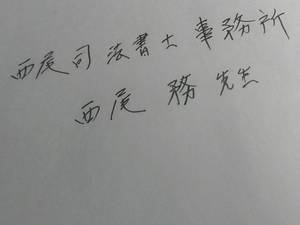 西尾司法書士事務所
西尾 務 先生